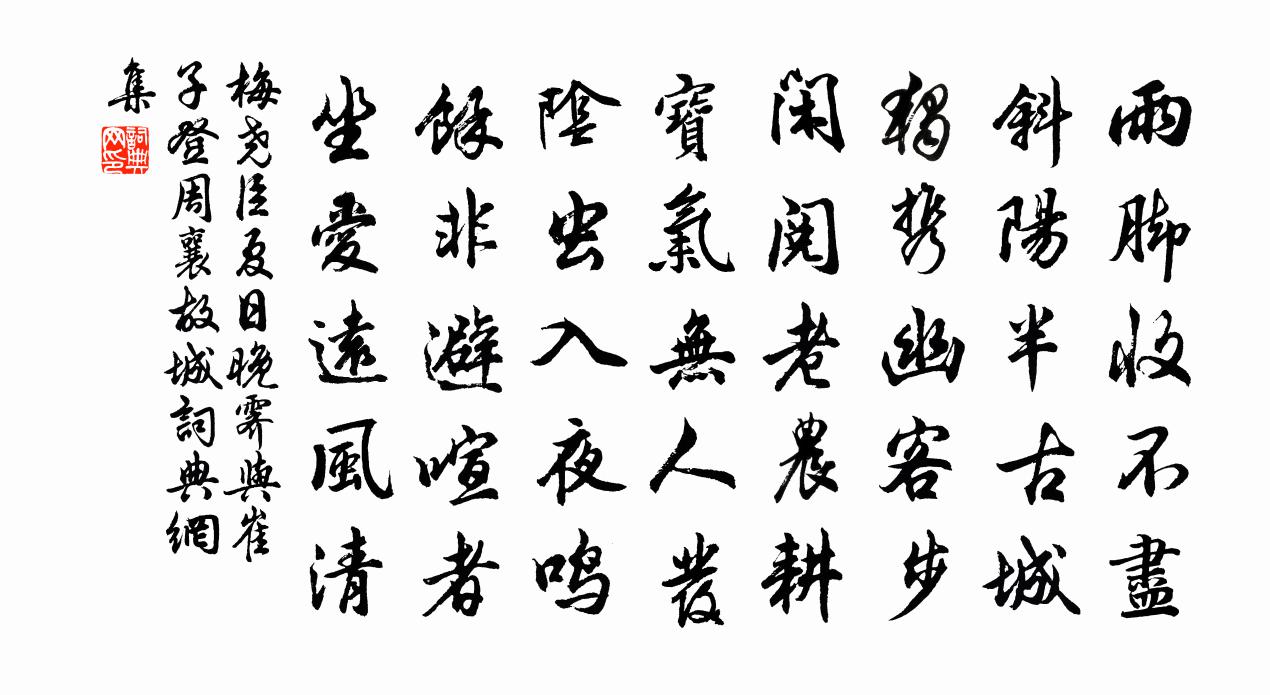 雨脚收不盡
斜陽半古城
獨携幽客步
閑閱老農耕
寶氣無人發
陰虫入夜鳴
餘非避喧者
坐愛遠風清
梅堯臣夏日晚霽與崔
子登周襄故城詞典網
集
詞典網印